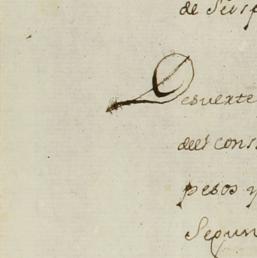 de Seis p
Desuerte
del cons
pesos y
Segun